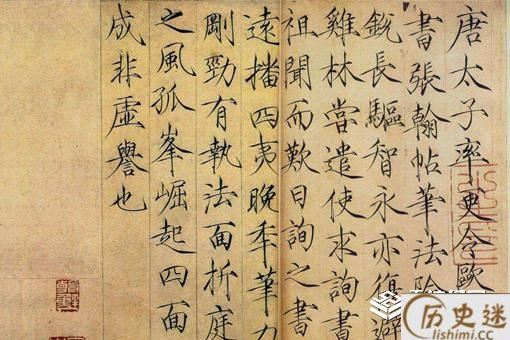 唐太子率更令歐
書張翰帖筆法險
銳長驅智永亦復避
雞林嘗遣使求詢書
祖聞而歎曰詢之書
遠播四夷晚秊筆力
剛勁有執法面折庭
之風孤峯崛起四面
成非虛譽也
历史迷
lishimi.cc